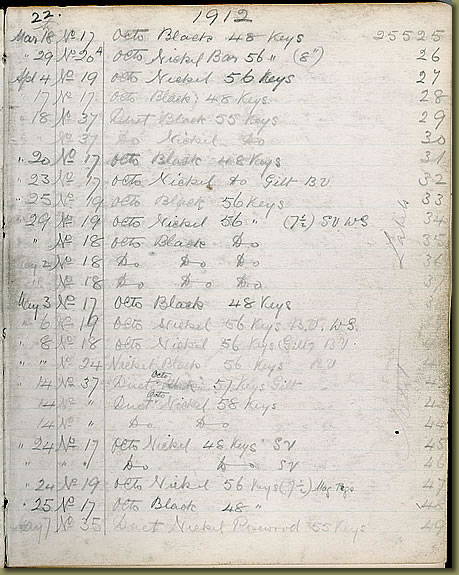 22. 1912
Mar 18 No 17 Octo Black 48 Keys 25525
" 29 No 20A Octo Nickel Bar 56 " (8") 26
Apl 4 No 19 Octo Nickel 56 Keys 27
17 No 17 Octo Black 48 Keys 28
18 No 37 Duet Black 55 Keys 29
" No 37 Do Nickel Do 30
" 20 No 17 Octo Black 48 Keys 31
" 23 No 17 Octo Nickel Do Gilt B.V. 32
" 25 No 19 Octo Black 56 Keys 33
" 29 No 19 Octo Nickel 56 " (7½) SV WS 34
" No 18 Octo Black Do 35
2 No 18 Do Do Do
" No 18 Do Do Do
May 3 No 17 Octo Black 48 Keys
" 6 No 19 Octo Nickel 56 Keys B.V. W.S.
" 8 No 18 Octo Nickel 56 Keys Gilt B.V.
" " No 24 Nickel Black 56 Keys B.V
" 14 No 37 Duet Octo 57 Keys Gilt
14 No " Duet Octo Nickel 58 Keys
14 No " Do Do 44
" 24 No 17 Octo Nickel 48 Keys SV 45
" " " Do Do SV 46
" 24 No 19 Octo Nickel 56 Keys (7½) 47
" 25 No 17 Octo Black 48 " 48
No 35 Duet Nickel Rosewood 55 Keys 49